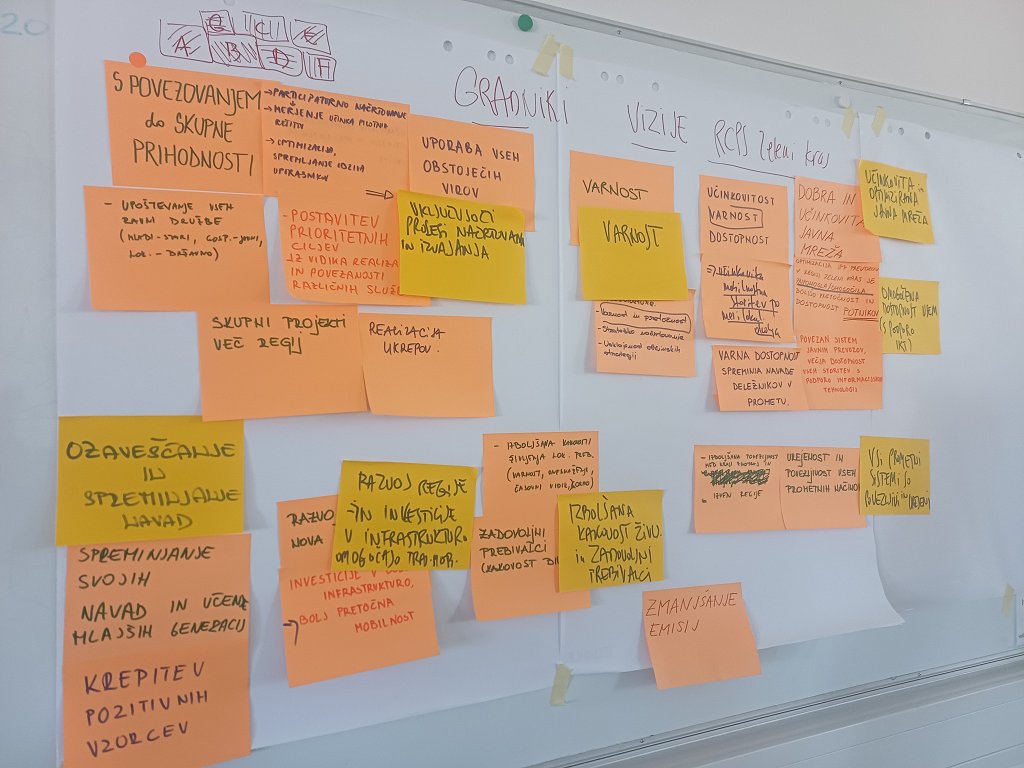 20
A C U E
B D F
GRADNIKI VIZIJE RCPS Zeleni kras
S POVEZOVANJEM
do SKUPNE
PRIHODNOSTI
→ PARTICIPATORNO NAČRTOVANJE
→ MERJENJE UČINKA PILOTNIH
REŠITEV
→ OPTIMIZACIJA,
SPREMLJANJE ODZIVA
UPORABNIKOV
UPORABA VSEH
OBSTOJEČIH
VIROV
- UPOŠTEVANJE VSEH
RAVNI DRUŽBE
(MLADI-STARI, GOSP.-JAVNI,
LOK. - DRŽAVNO)
- POSTAVITEV
PRIORITETNIH
CILJEV
IZ VIDIKA REALIZA
IN POVEZANOSTI
RAZLIČNIH SLUŽB
VKLJUČUJOČI
PROCESI NAČRTOVANJA
in IZVAJANJA
SKUPNI PROJEKTI
VEČ REGIJ
REALIZACIJA
UKREPOV.
VARNOST
VARNOST
- Varnost in pretočnost
- Strateško načrtovanje
- Usklajenost občinskih
strategij
UČINKOVITOST
VARNOST
DOSTOPNOST
⇒ učinkovita
mobilnostna
storitev po
meri lokal.
okolja
VARNA DOSTOPNOST
SPREMINJA NAVADE
DELEŽNIKOV V
PROMETU.
DOBRA IN
UČINKOVITA
JAVNA
MREŽA
OPTIMIZACIJA JPP PREVOZOV
V REGIJI ZELENI KRAS JE
OMOGOČILA
BOLJŠO PRETOČNOST IN
DOSTOPNOST POTNIKOV
POVEZAN SISTEM
JAVNIH PREVOZOV,
VEČJA DOSTOPNOST
VSEH STORITEV S
PODPORO INFORMACIJSKE
TEHNOLOGIJE
UČINKOVITA in
OPTIMIZIRANA
JAVNA MREŽA
OMOGOČENA
DOSTOPNOST VSEM
(S PODPORO
IKT)
OZAVEŠČANJE
IN
SPREMINJANJE
NAVAD
SPREMINJANJE
SVOJIH
NAVAD IN UČENJE
MLAJŠIH GENERACIJ
KREPITEV
POZITIVNIH
VZORCEV
RAZVO
NOVA
RAZVOJ REGIJE
- IN INVESTICIJE
V INFRASTRUKTURO
OMOGOČAJO TRAJ. MOB.
INVESTICIJE V
INFRASTRUKTURO,
→ BOLJ PRETOČNA
MOBILNOST
- IZBOLJŠANA KAKOVOST
ŽIVLJENJA LOK. PREB.
(VARNOST, ONESNAŽENJE,
ČASOVNI VIDIK, KOLO)
ZADOVOLJNI
PREBIVALCI
(KAKOVOST BI
IZBOLJŠANA
KAKOVOST ŽIVLJ.
in ZADOVOLJNI
PREBIVALCI
- IZBOLJŠANA POVEZLJIVOST
MED KRAJI ZNOTRAJ IN
IZVEN REGIJE
UREJENOST IN
POVEZLJIVOST VSEH
PROMETNIH NAČINOV
VSI PROMETNI
SISTEMI SO
POVEZLJIVI IN UREJENI
ZMANJŠANJE
EMISIJ